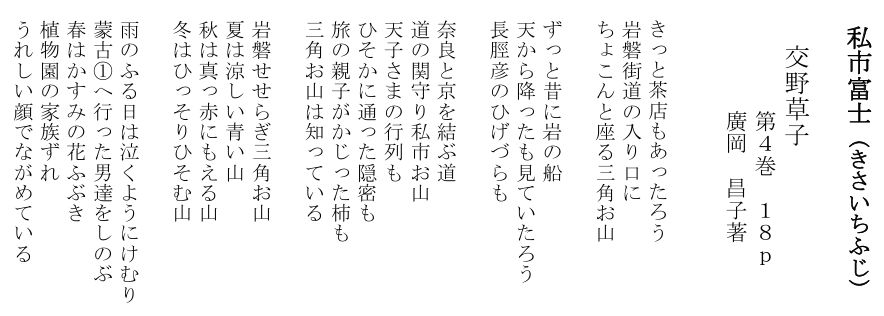 私市富士（きさいちふじ）
交野草子
第４巻　１８ｐ
廣岡　昌子著
きっと茶店もあったろう
岩磐街道の入り口に
ちょこんと座る三角お山
ずっと昔に岩の船
天から降ったも見ていたろう
長脛彦のひげづらも
奈良と京を結ぶ道
道の関守り私市お山
天子さまの行列も
ひそかに通った隠密も
旅の親子がかじった柿も
三角お山は知っている
岩磐せせらぎ三角お山
夏は涼しい青い山
秋は真っ赤にもえる山
冬はひっそりひそむ山
雨のふる日は泣くようにけむり
蒙古①へ行った男達をしのぶ
春はかすみの花ふぶき
植物園の家族ずれ
うれしい顔でながめている